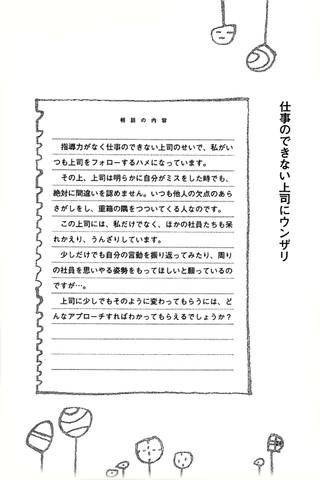 仕事のできない上司にウンザリ
相談の内容
指導力がなく仕事のできない上司のせいで、私がい
つも上司をフォローするハメになっています。
その上、上司は明らかに自分がミスをした時でも、
絶対に間違いを認めません。いつも他人の欠点のあら
さがしをし、重箱の隅をつついてくる人なのです。
この上司には、私だけでなく、ほかの社員たちも呆
れかえり、うんざりしています。
少しだけでも自分の言動を振り返ってみたり、周り
の社員を思いやる姿勢をもってほしいと願っているの
ですが…。
上司に少しでもそのように変わってもらうには、ど
んなアプローチすればわかってもらえるでしょうか？